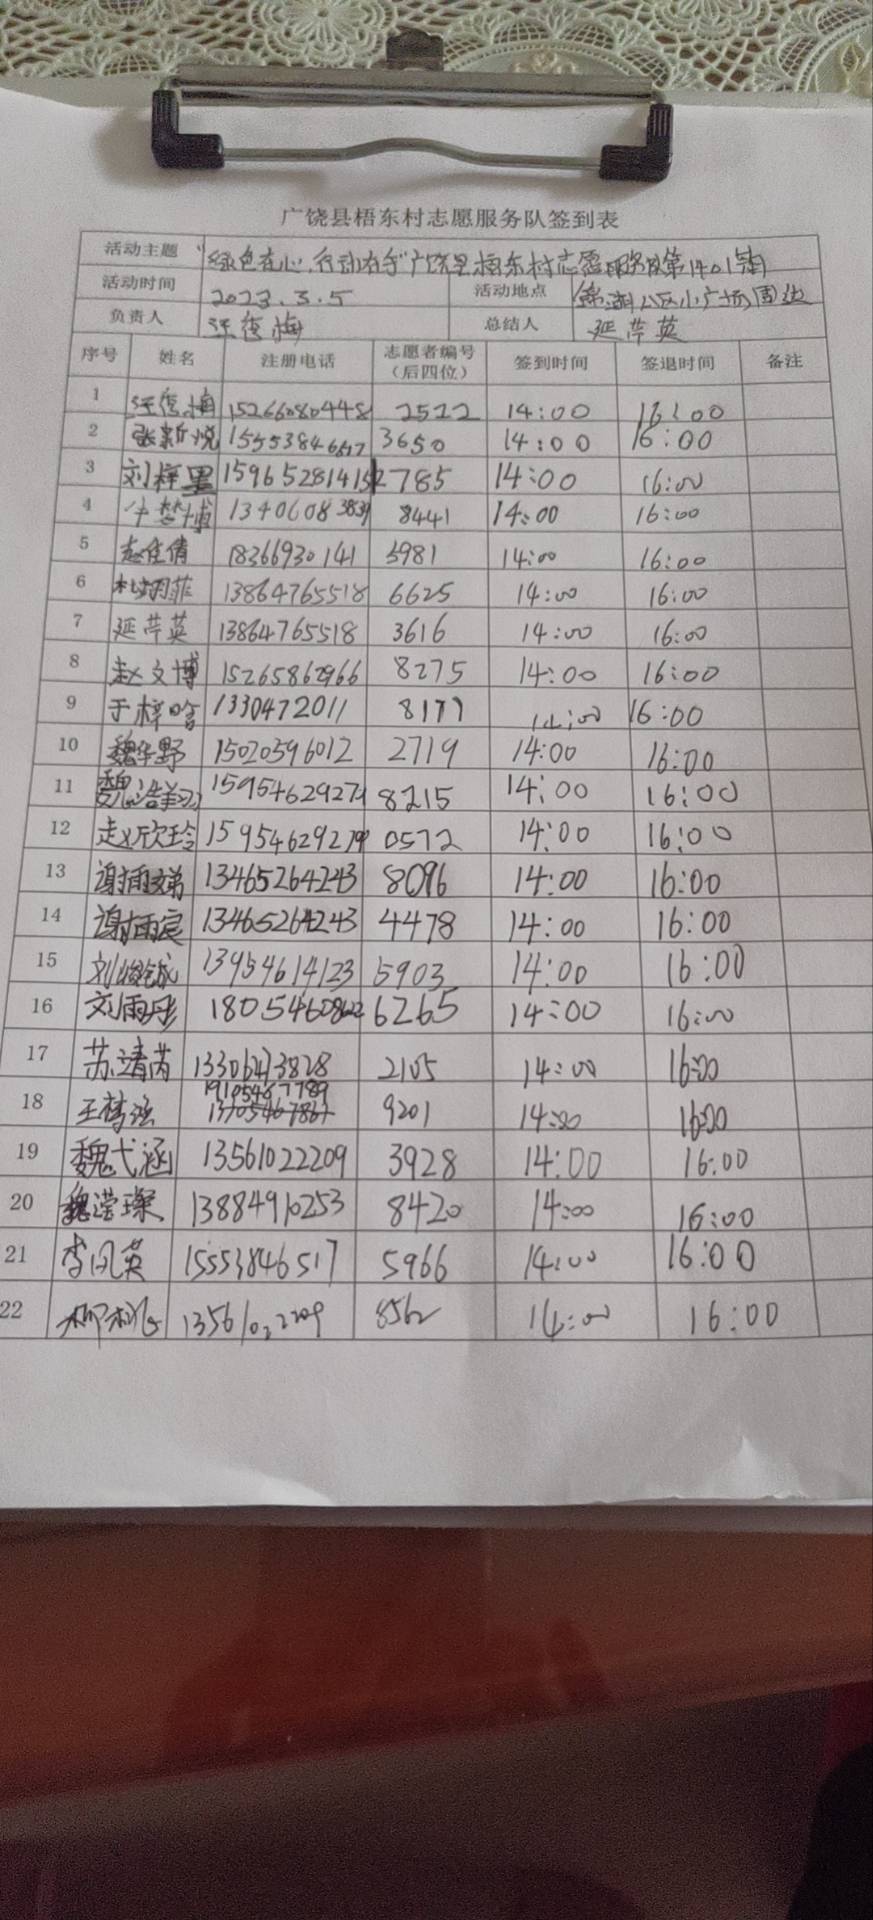 广饶县梧东村志愿服务队签到表
活动主题 "绿色在心,行动在手"广饶县梧东村志愿服务队第1401期
活动时间 2023.3.5 活动地点 锦湖小区小广场周边
负责人 汪俊梅 总结人 延芹英
序号 姓名 注册电话 志愿者编号(后四位) 签到时间 签退时间 备注
1 汪俊梅 15266080448 2522 14:00 16:00
2 张新悦 15553846517 3650 14:00 16:00
3 刘梓墨 15965281415 2785 14:00 16:00
4 牛梦博 13406083839 8441 14:00 16:00
5 赵佳倩 18366930141 3981 14:00 16:00
6 13864765518 6625 14:00 16:00
7 延芹英 13864765518 3616 14:00 16:00
8 赵文博 15265862966 8275 14:00 16:00
9 于梓晗 1330472011 8177 14:00 16:00
10 魏华野 15020596012 2719 14:00 16:00
11 魏 15954629279 8215 14:00 16:00
12 赵欣玲 15954629279 0572 14:00 16:00
13 谢雨 13465264243 8096 14:00 16:00
14 谢雨宸 13465264243 4478 14:00 16:00
15 刘俊铖 13954614123 5903 14:00 16:00
16 刘雨彤 18054608622 6265 14:00 16:00
17 苏靖芮 13306473828 2105 14:00 16:00
18 王梦 19105487789 9201 14:00 16:00
19 魏弋涵 13561022209 3928 14:00 16:00
20 魏滢璨 13884910253 8420 14:00 16:00
21 李凤英 15553846517 5966 14:00 16:00
22 13561022209 8562 14:00 16:00